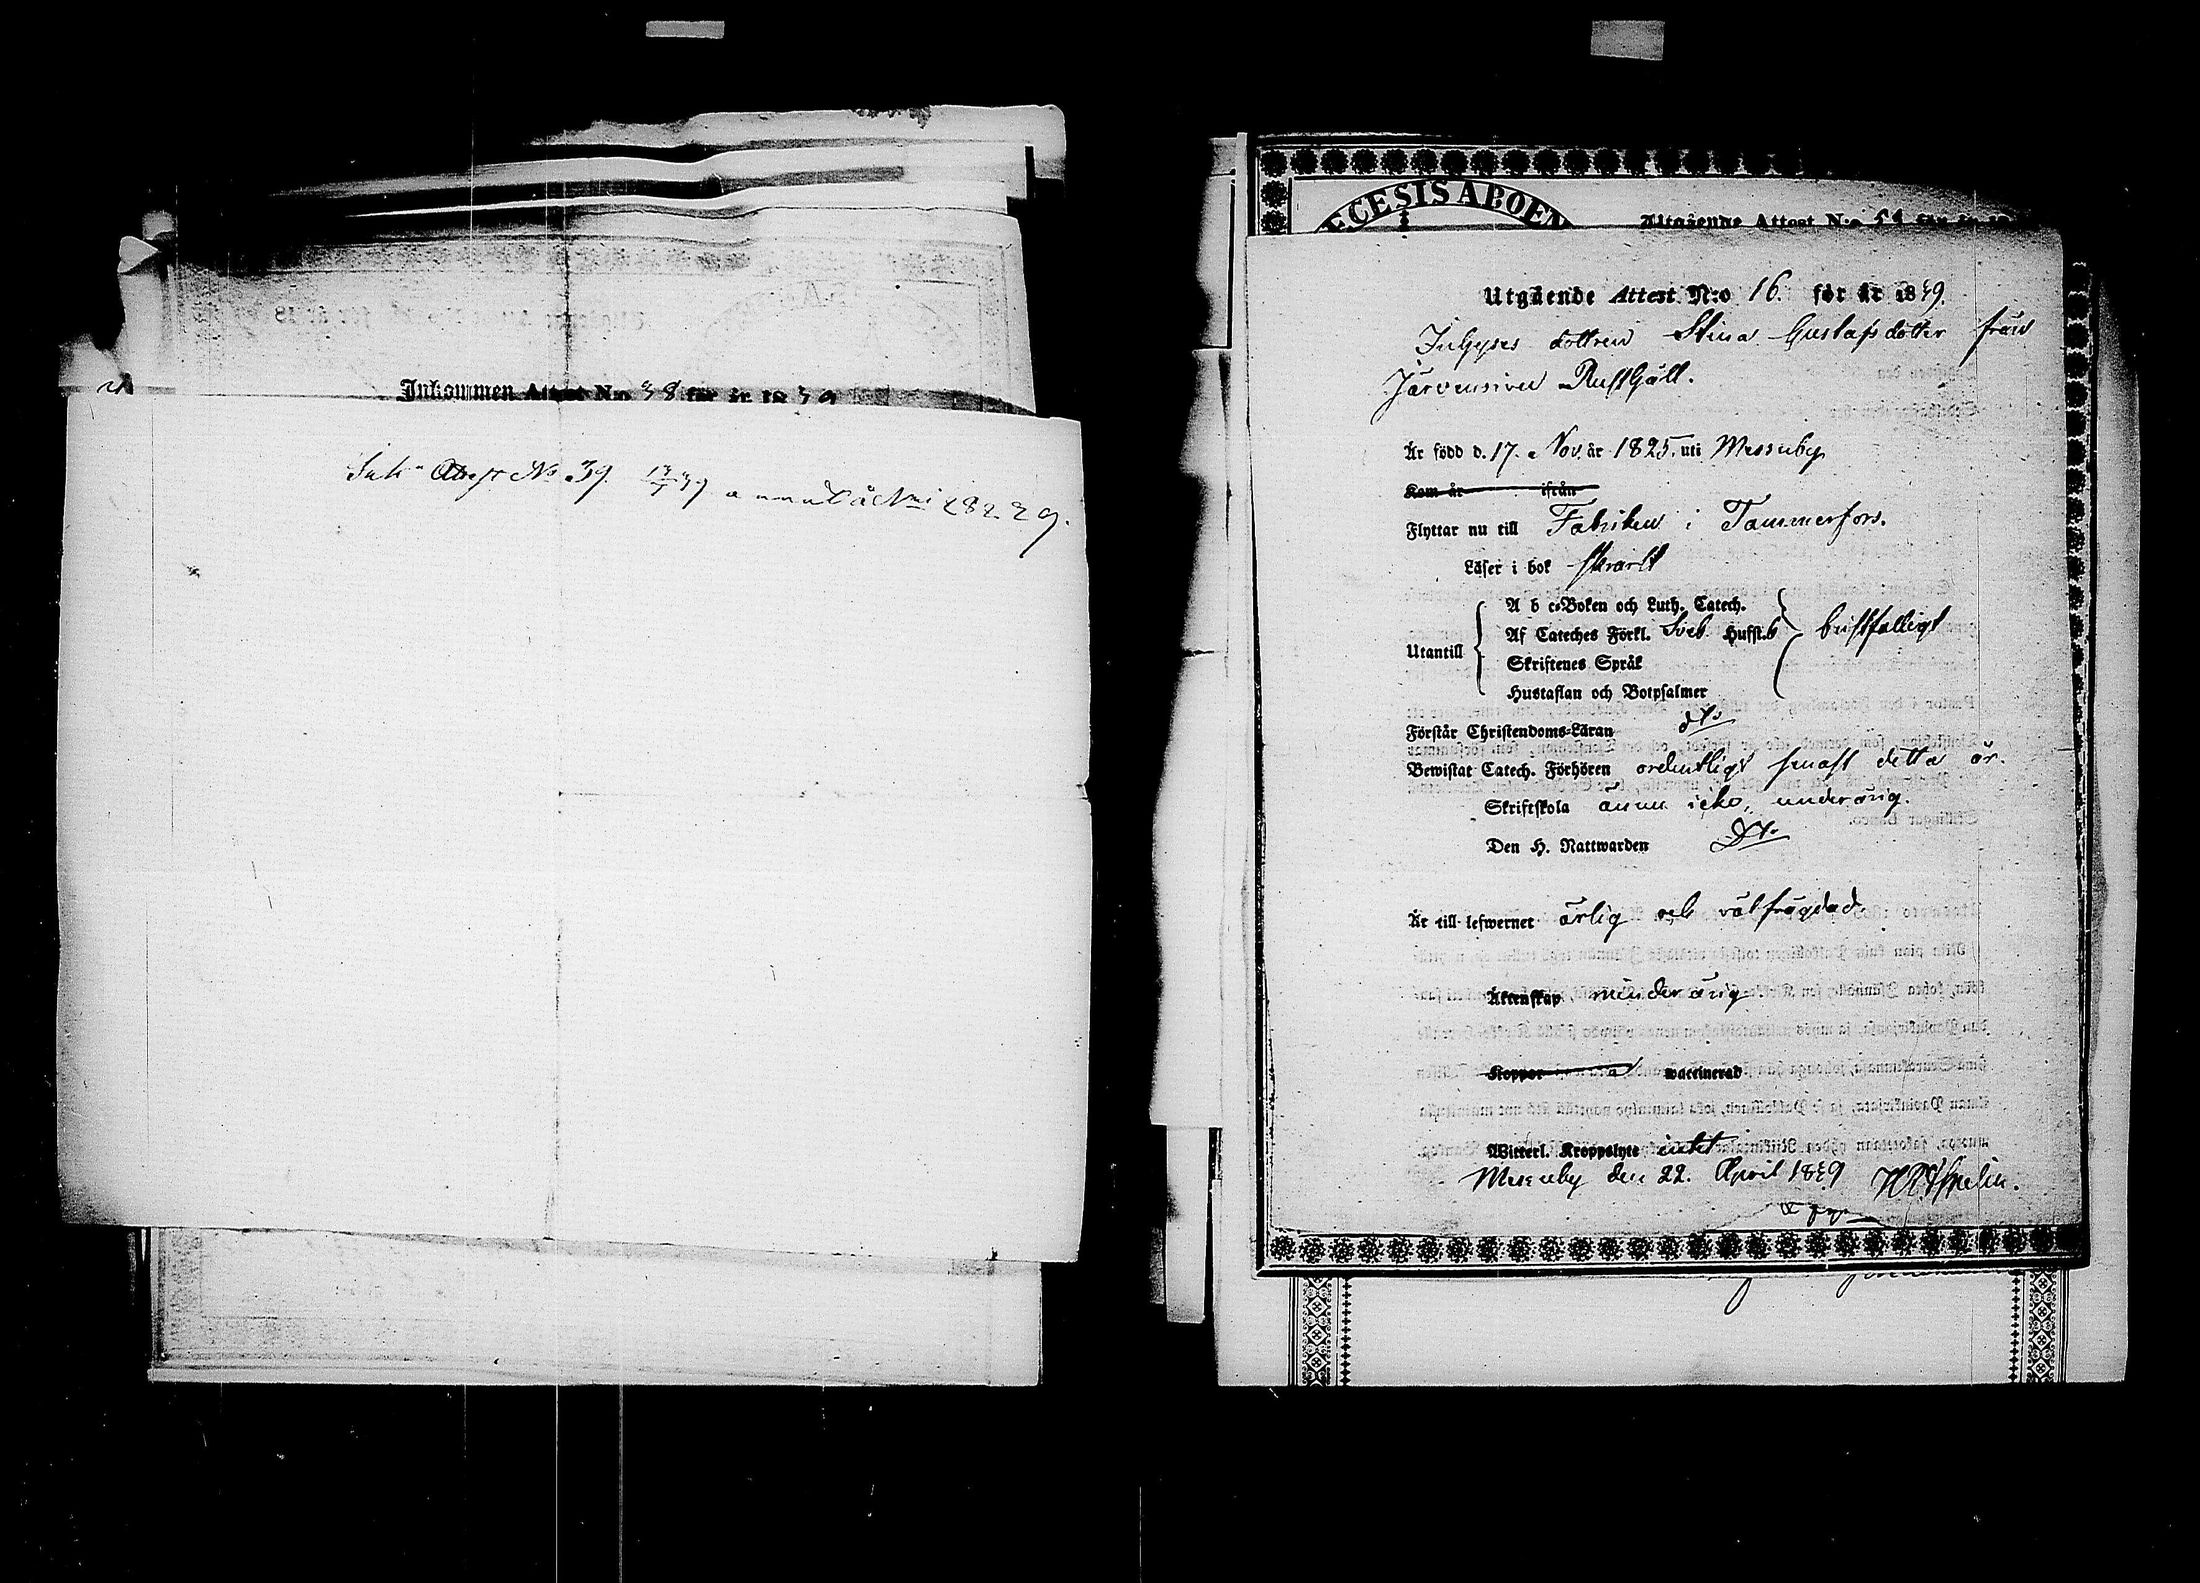 Inkommen Attest N:o 38 för år 1839
Ink. Attest No 39. 17/7 39
ECESIS ABOEN
Utgående Attest N:o 51 för år 18
Utgående Attest N:o 16. för år 1839.
Inhyses dottren Stina Gustafsdotter från
Järvensivu Rusthåll.
Är född d. 17. Nov. år 1825. uti Messuby
Kom år ifrån
Flyttar nu till Fabriken i Tammerfors.
Läser i bok svarlt
A b c-Boken och Luth. Catech.
Af Cateches Förkl. Sveb. Hufst. 6 bristfälligt
Utantill
Skriftenes Språk
Hustaflan och Botpsalmer
Förstår Christendoms-Läran dto
Bewistat Catech. Förhören ordentligt senast detta år.
Skriftskola ännu icke, underårig.
Den H. Nattwarden Dto
Är till lefwernet ärlig och välfrägdad
Äktenskap minderårig
Koppor waccinerad
Witterl. Kroppslyte intet
Messuby den 22. April 1839